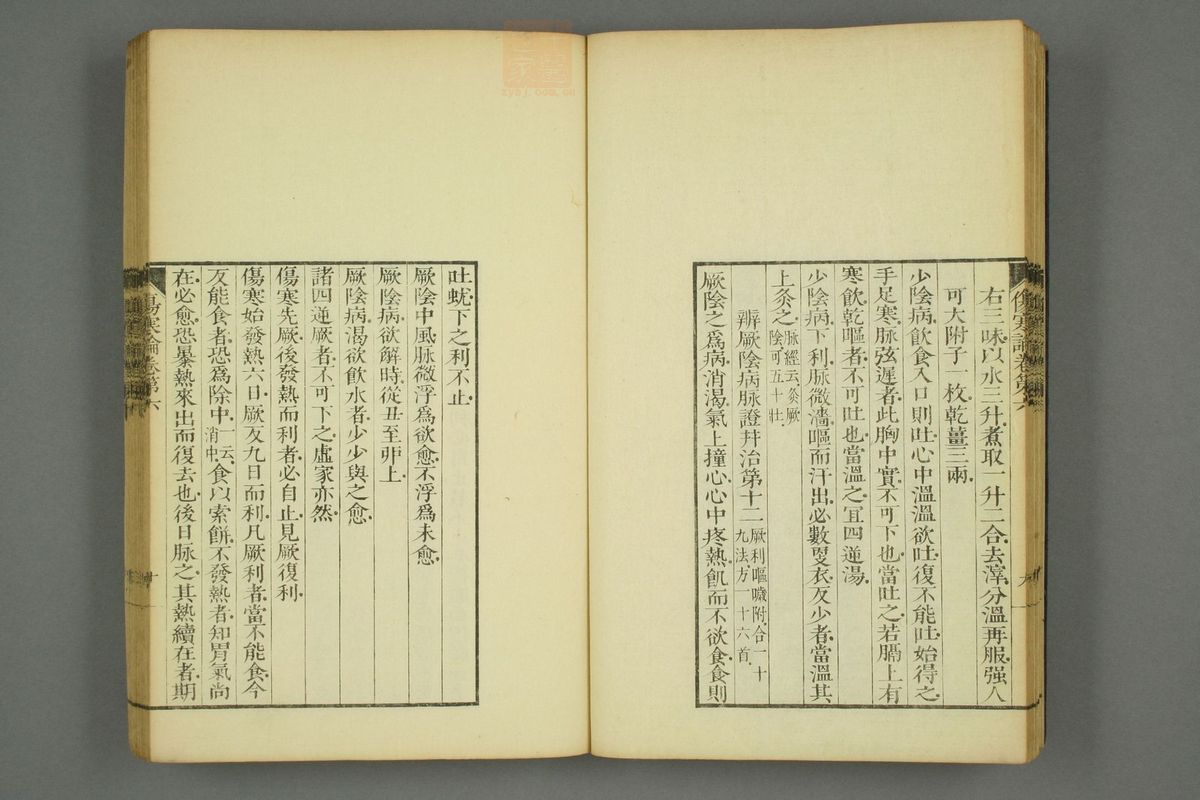 右三味以水三升煮取一升二合去滓分溫再服强人
可大附子一枚乾薑三兩
少陰病飲食入口則吐心中溫溫欲吐復不能吐始得之
手足寒脉弦遲者此胸中實不可下也當吐之若膈上有
寒飲乾嘔者不可吐也當溫之宜四逆湯
少陰病下利脉微濇嘔而汗出必數更衣反少者當溫其
上灸之脉經云灸厥陰可五十壯
辨厥陰病脉證幷治第十二厥利嘔噦附合一十九法方一十六首
厥陰之爲病消渴氣上撞心心中疼熱飢而不欲食食則
傷寒論卷第六
吐蚘下之利不止
厥陰中風脉微浮爲欲愈不浮爲未愈
厥陰病欲解時從丑至卯上
厥陰病渴欲飲水者少少與之愈
諸四逆厥者不可下之虛家亦然
傷寒先厥後發熱而利者必自止見厥復利
傷寒始發熱六日厥反九日而利凡厥利者當不能食今
反能食者恐爲除中一云消中食以索餠不發熱者知胃氣尚
在必愈恐暴熱來出而復去也後日脉之其熱續在者期
傷寒論卷第六
zysj.com.cn